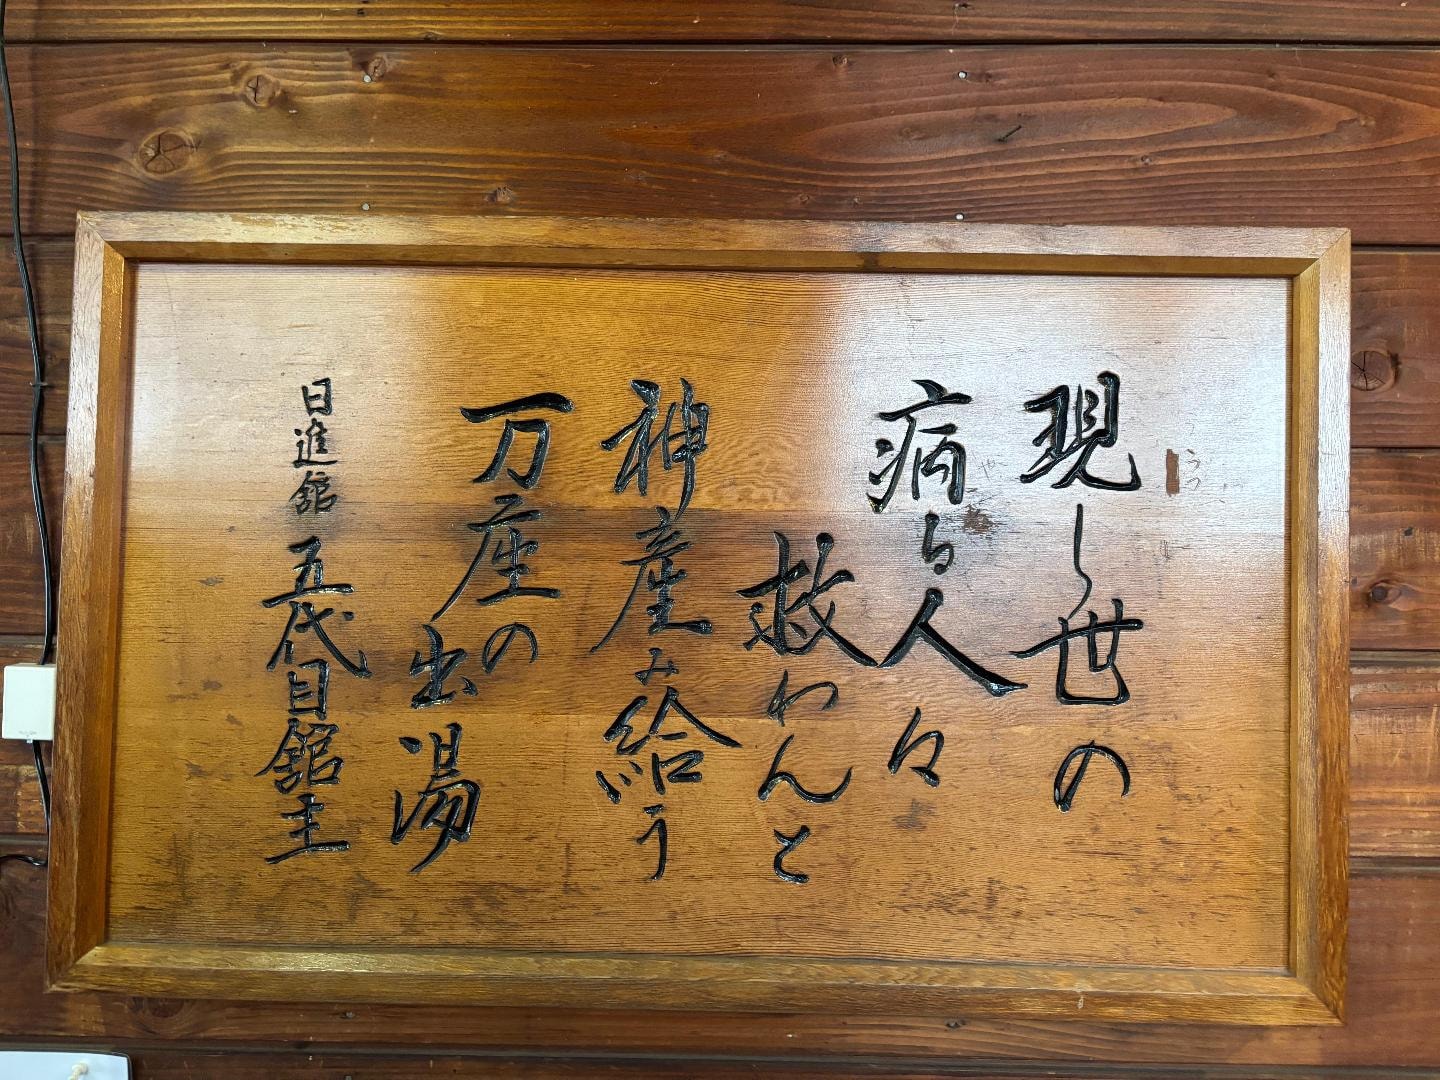 現し世の
病る人々
救わんと
神産み給う
万座の
出湯
日進館 五代目館主